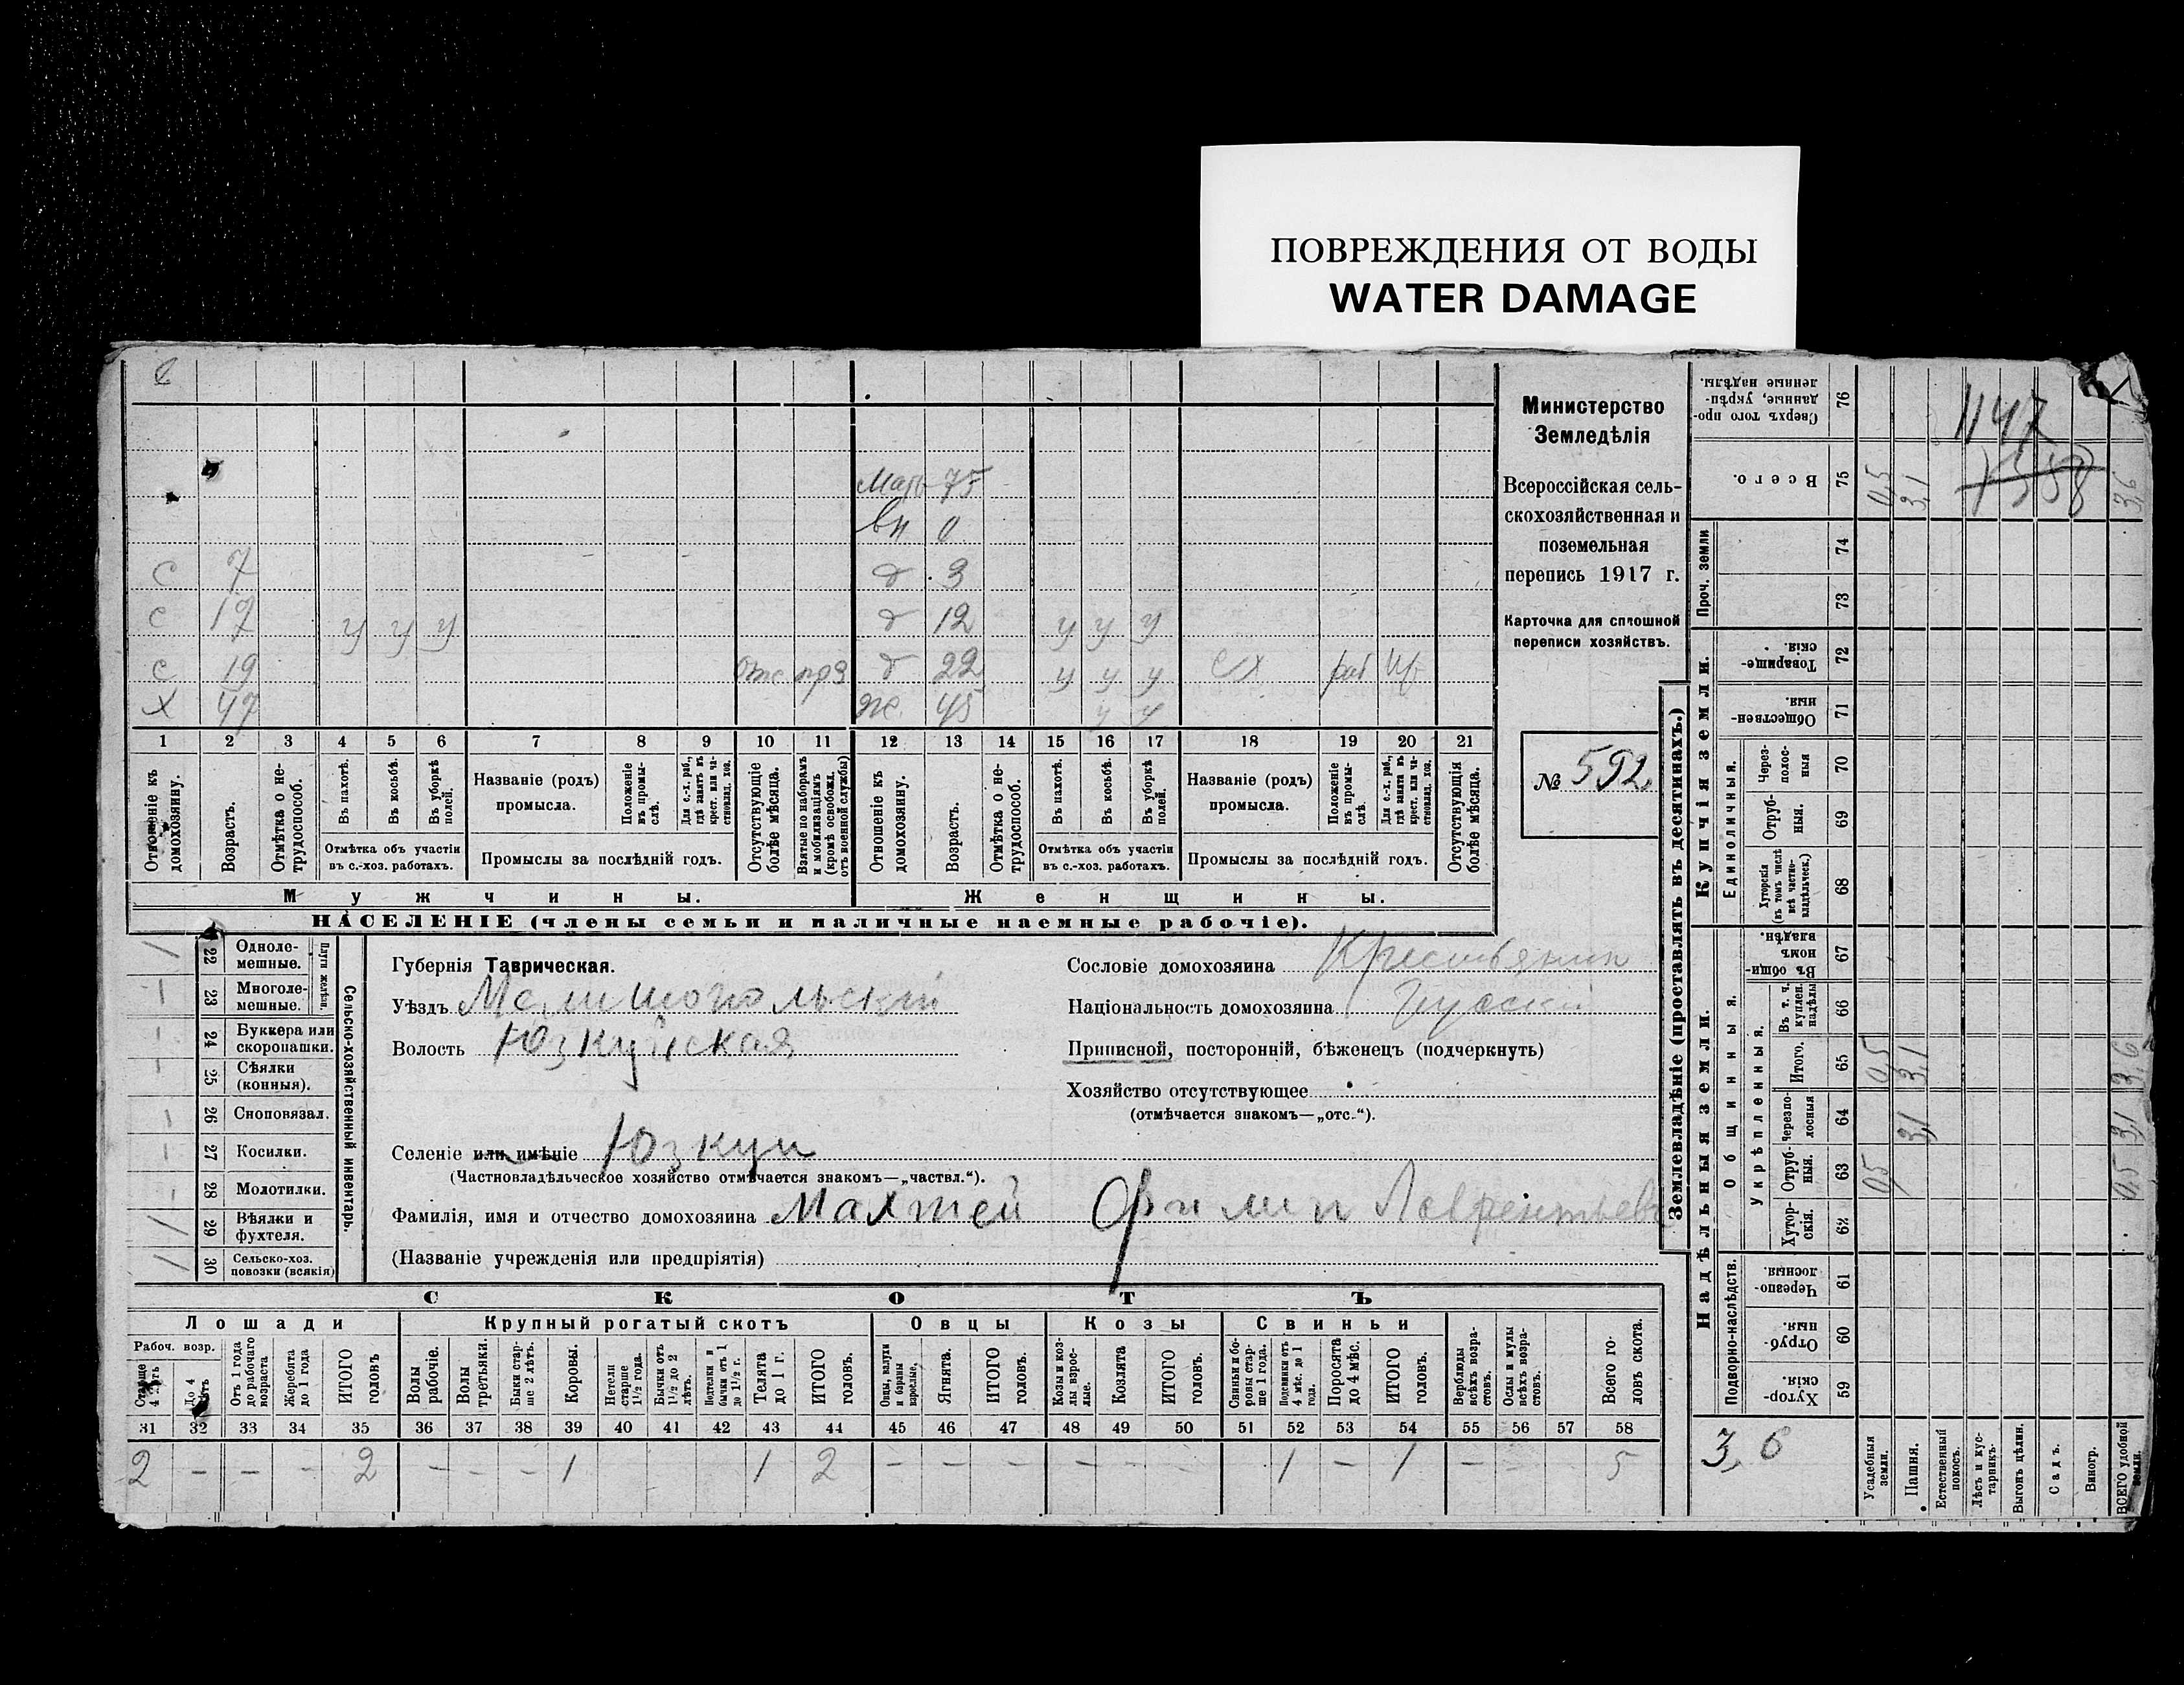 ПОВРЕЖДЕНИЯ ОТ ВОДЫ
WATER DAMAGE
Министерство
Земледѣлія
Всероссійская сель-
скохозяйственная и
поземельная
перепись 1917 г.
Карточка для сплошной
переписи хозяйствъ.
№ 592
Мать 75
вн 0
с 7 д 3
с 17 у у у д 12 у у у
с 19 отс прз д 22 у у у сх раб
х 47 ж 45 у у
1 2 3 4 5 6 7 8 9 10 11 12 13 14 15 16 17 18 19 20 21
Отношеніе къ домохозяину.
Возрастъ.
Отмѣтка о не-трудоспособ.
Въ пахотѣ.
Въ косьбѣ.
Въ уборкѣ полей.
Отмѣтка объ участіи
въ с.-хоз. работахъ.
Названіе (родъ)
промысла.
Положеніе въ промы-слѣ.
Для с.-х. раб., гдѣ занятъ въ крест. или ча-стновлад. хоз.
Промыслы за послѣдній годъ.
Отсутствующіе болѣе мѣсяца.
Взятые по наборамъ и мобилизаціямъ (кромѣ освобожд. отъ военной службы)
Отношеніе къ домохозяину.
Возрастъ.
Отмѣтка о не-трудоспособ.
Въ пахотѣ.
Въ косьбѣ.
Въ уборкѣ полей.
Отмѣтка объ участіи
въ с.-хоз. работахъ.
Названіе (родъ)
промысла.
Положеніе въ промы-слѣ.
Для с.-х. раб., гдѣ занятъ въ крест. или ча-стновлад. хоз.
Промыслы за послѣдній годъ.
Отсутствующія болѣе мѣсяца.
Мужчины. Женщины.
НАСЕЛЕНІЕ (члены семьи и наличные наемные рабочіе).
22 Одноле-мешные.
23 Многоле-мешные.
Плуги желѣзн.
24 Буккера или скоропашки.
25 Сѣялки (конныя).
26 Сноповязал.
27 Косилки.
28 Молотилки.
29 Вѣялки и фухтеля.
30 Сельско-хоз. повозки (всякія)
Сельско-хозяйственный инвентарь.
Губернія Таврическая.
Уѣздъ Мелитопольскій
Волость Юзкуйская
Селеніе или имѣніе Юзкуи
(Частновладѣльческое хозяйство отмѣчается знакомъ—„частвл.“).
Фамилія, имя и отчество домохозяина Махтей Филип Лаврентьев
(Названіе учрежденія или предпріятія)
Сословіе домохозяина Крестьянин
Національность домохозяина Русскій
Приписной, посторонній, бѣженецъ (подчеркнуть)
Хозяйство отсутствующее
(отмѣчается знакомъ—„отс.“).
СКОТЪ
Лошади Крупный рогатый скотъ Овцы Козы Свиньи
Рабоч. возр.
Старше 4 лѣтъ
До 4 лѣтъ
Отъ 1 года до рабочаго возраста
Жеребята до 1 года
ИТОГО головъ
Волы рабочіе.
Волы третьяки.
Быки стар-ше 2 лѣтъ.
Коровы.
Нетели старше 1½ года.
Бычки отъ 1½ до 2 лѣтъ.
Подтелки и бычки отъ 1 до 1½ г.
Телята до 1 г.
ИТОГО головъ.
Овцы, валухи и бараны взрослые.
Ягнята.
ИТОГО головъ.
Козы и коз-лы взрос-лые.
Козлята
ИТОГО головъ.
Свиньи и бо-ровы стар-ше 1 года.
Подсвинки отъ 4 мѣс. до 1 года.
Поросята до 4 мѣс.
ИТОГО головъ.
Верблюды всѣхъ возра-стовъ.
Ослы и мулы всѣхъ возра-стовъ.
Всего го-ловъ скота.
31 32 33 34 35 36 37 38 39 40 41 42 43 44 45 46 47 48 49 50 51 52 53 54 55 56 57 58
2 – – – 2 – – – 1 1 2 – – – – – – 1 – 1 – – 5
Землевладѣніе (проставлять въ десятинахъ.)
Надѣльныя земли. Купчія земли. Проч. земли
Подворно-наслѣдств.
Общинныя.
Укрѣпленныя.
Единоличныя.
Хутор-скія. 59
Отруб-ныя. 60
Черезпо-лосныя. 61
Хутор-скія. 62
Отруб-ныя. 63 0,5 0,5
Черезпо-лосныя 64 3,1 3,1
Итого. 65 0,5 3,1 3,6
Въ т. ч. куплен. надѣлы 66
Въ общин-номъ владѣн. 67
Хуторскія (въ томъ числѣ всѣ частно-владѣльческ.) 68
Отруб-ныя. 69
Через-полос-ныя 70
Обществен-ныя 71
Товарище-скія. 72
73
74
Всего. 75 0,5 3,1 3,6
Сверхъ того про-данные, укрѣп-ленные надѣлы. 76
1147
1358
3,6
Усадебныя земли.
Пашня.
Естественный покосъ.
Лѣсъ и кус-тарникъ.
Выгонъ цѣлин.
Садъ.
Виногр.
ВСЕГО удобной земли.